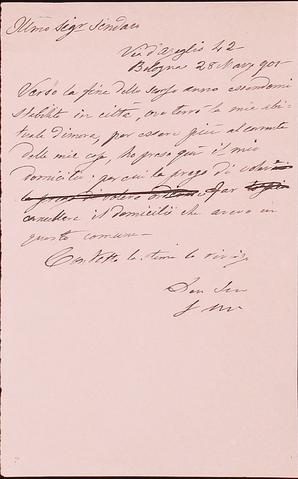 Illmo Sigr Sindaco
Via d'Azeglio 42
Bologna 28 Marzo 901
Verso la fine dello scorso anno essendomi
stabilito in città, ove terrò la mia abi-
tuale dimora, per essere più al corrente
delle mie cose, ho preso qui il mio
domicilio: per cui la prego di volere
far
cancellare il domicilio che avevo in
questo comune—
Con tutta la stima la riverisco